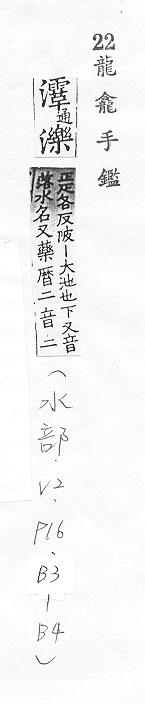 22龍龕手鑑
澤通濼
正疋各反陂丨大池也下又音
洛水名又藥曆二音二
(水部.V2.P16.B3-B4)